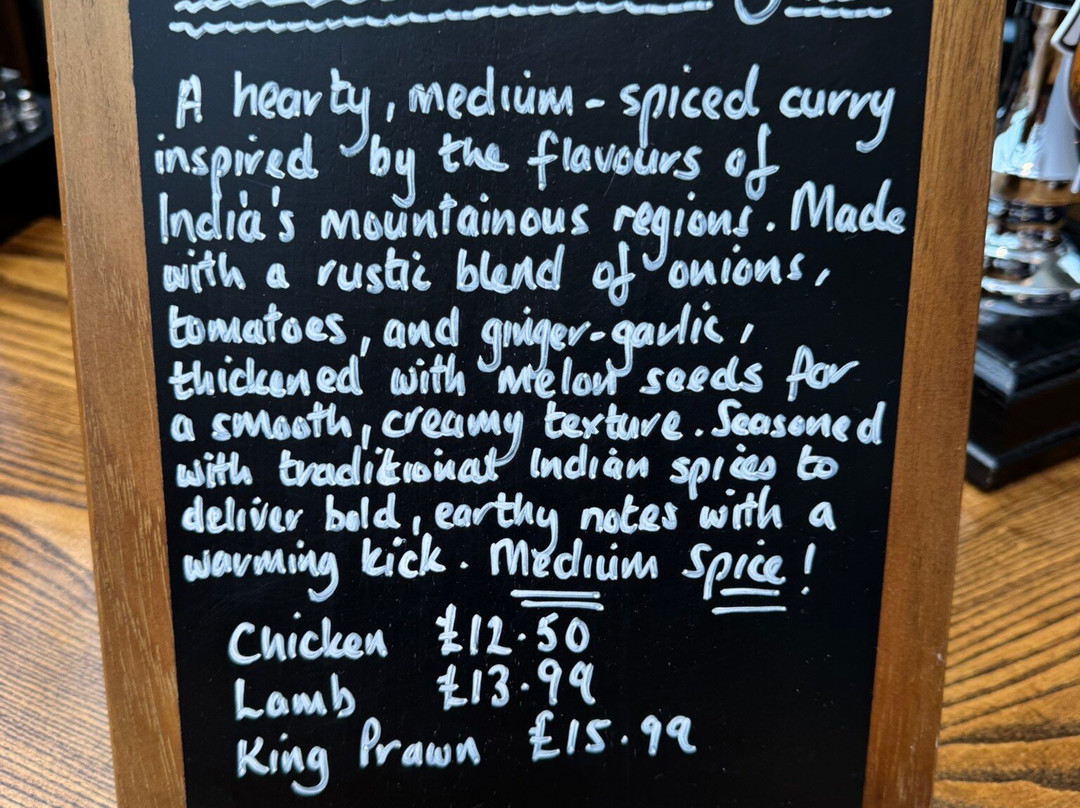 A hearty, medium-spiced curry
inspired by the flavours of
India's mountainous regions. Made
with a rustic blend of onions,
tomatoes, and ginger-garlic,
thickened with melon seeds for
a smooth, creamy texture. Seasoned
with traditional Indian spices to
deliver bold, earthy notes with a
warming kick. Medium Spice!
Chicken £12.50
Lamb £13.99
King Prawn £15.99